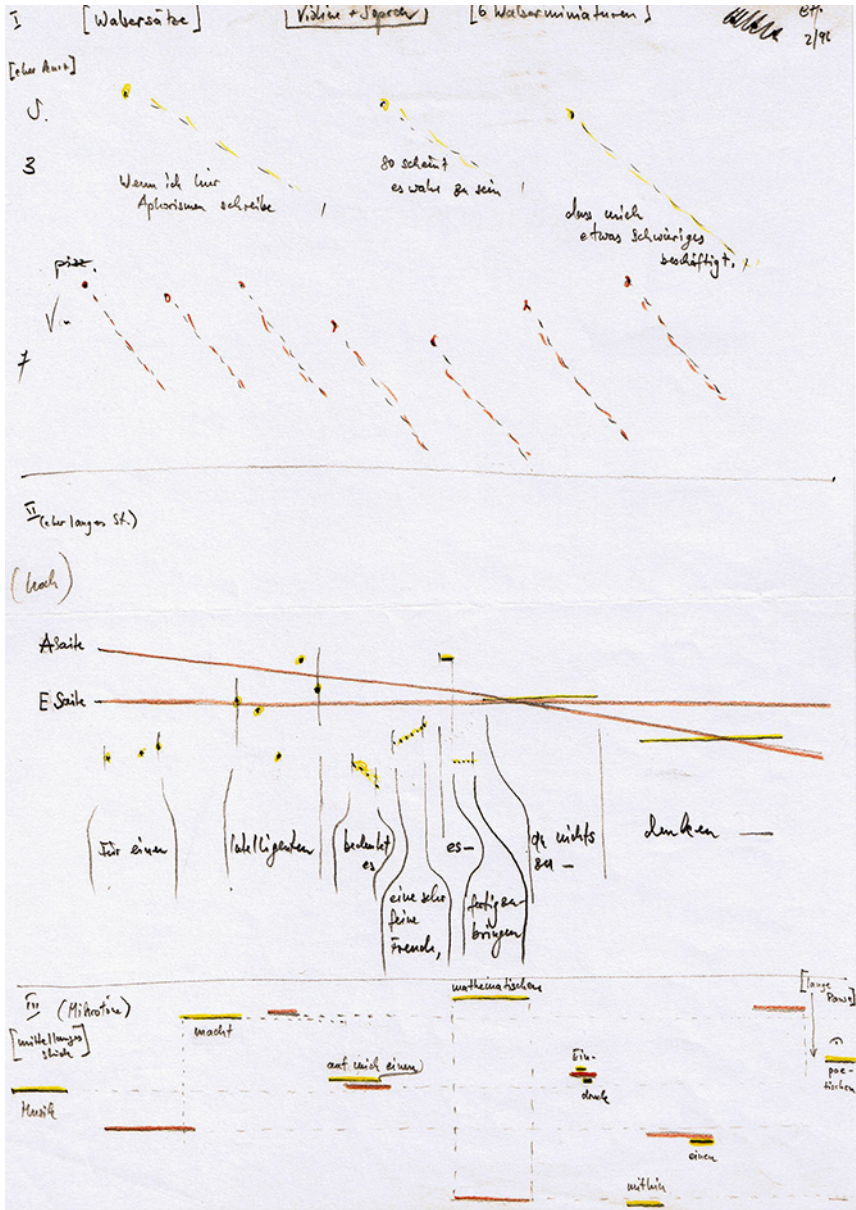 I [Walsersätze] [Violine + Sopran] [6 Walserminiaturen]
2/96
S.
3
Wenn ich hier
Aphorismen schreibe ,
so scheint
es wahr zu sein ,
dass mich
etwas Schwieriges
beschäftigt.
pizz.
Vn
7
II
(hoch)
A Saite
E Saite
Für einen
Intelligenten
bedeutet
es
eine sehr
feine
Freude,
es –
fertigzu-
bringen
an nichts
zu –
denken —
III (Mikrotöne)
[mittellanges
Stück]
[lange
Pause]
Musik
macht
auf mich einen
mathematischen
Ein-
druck
mithin
einen
poe-
tischen